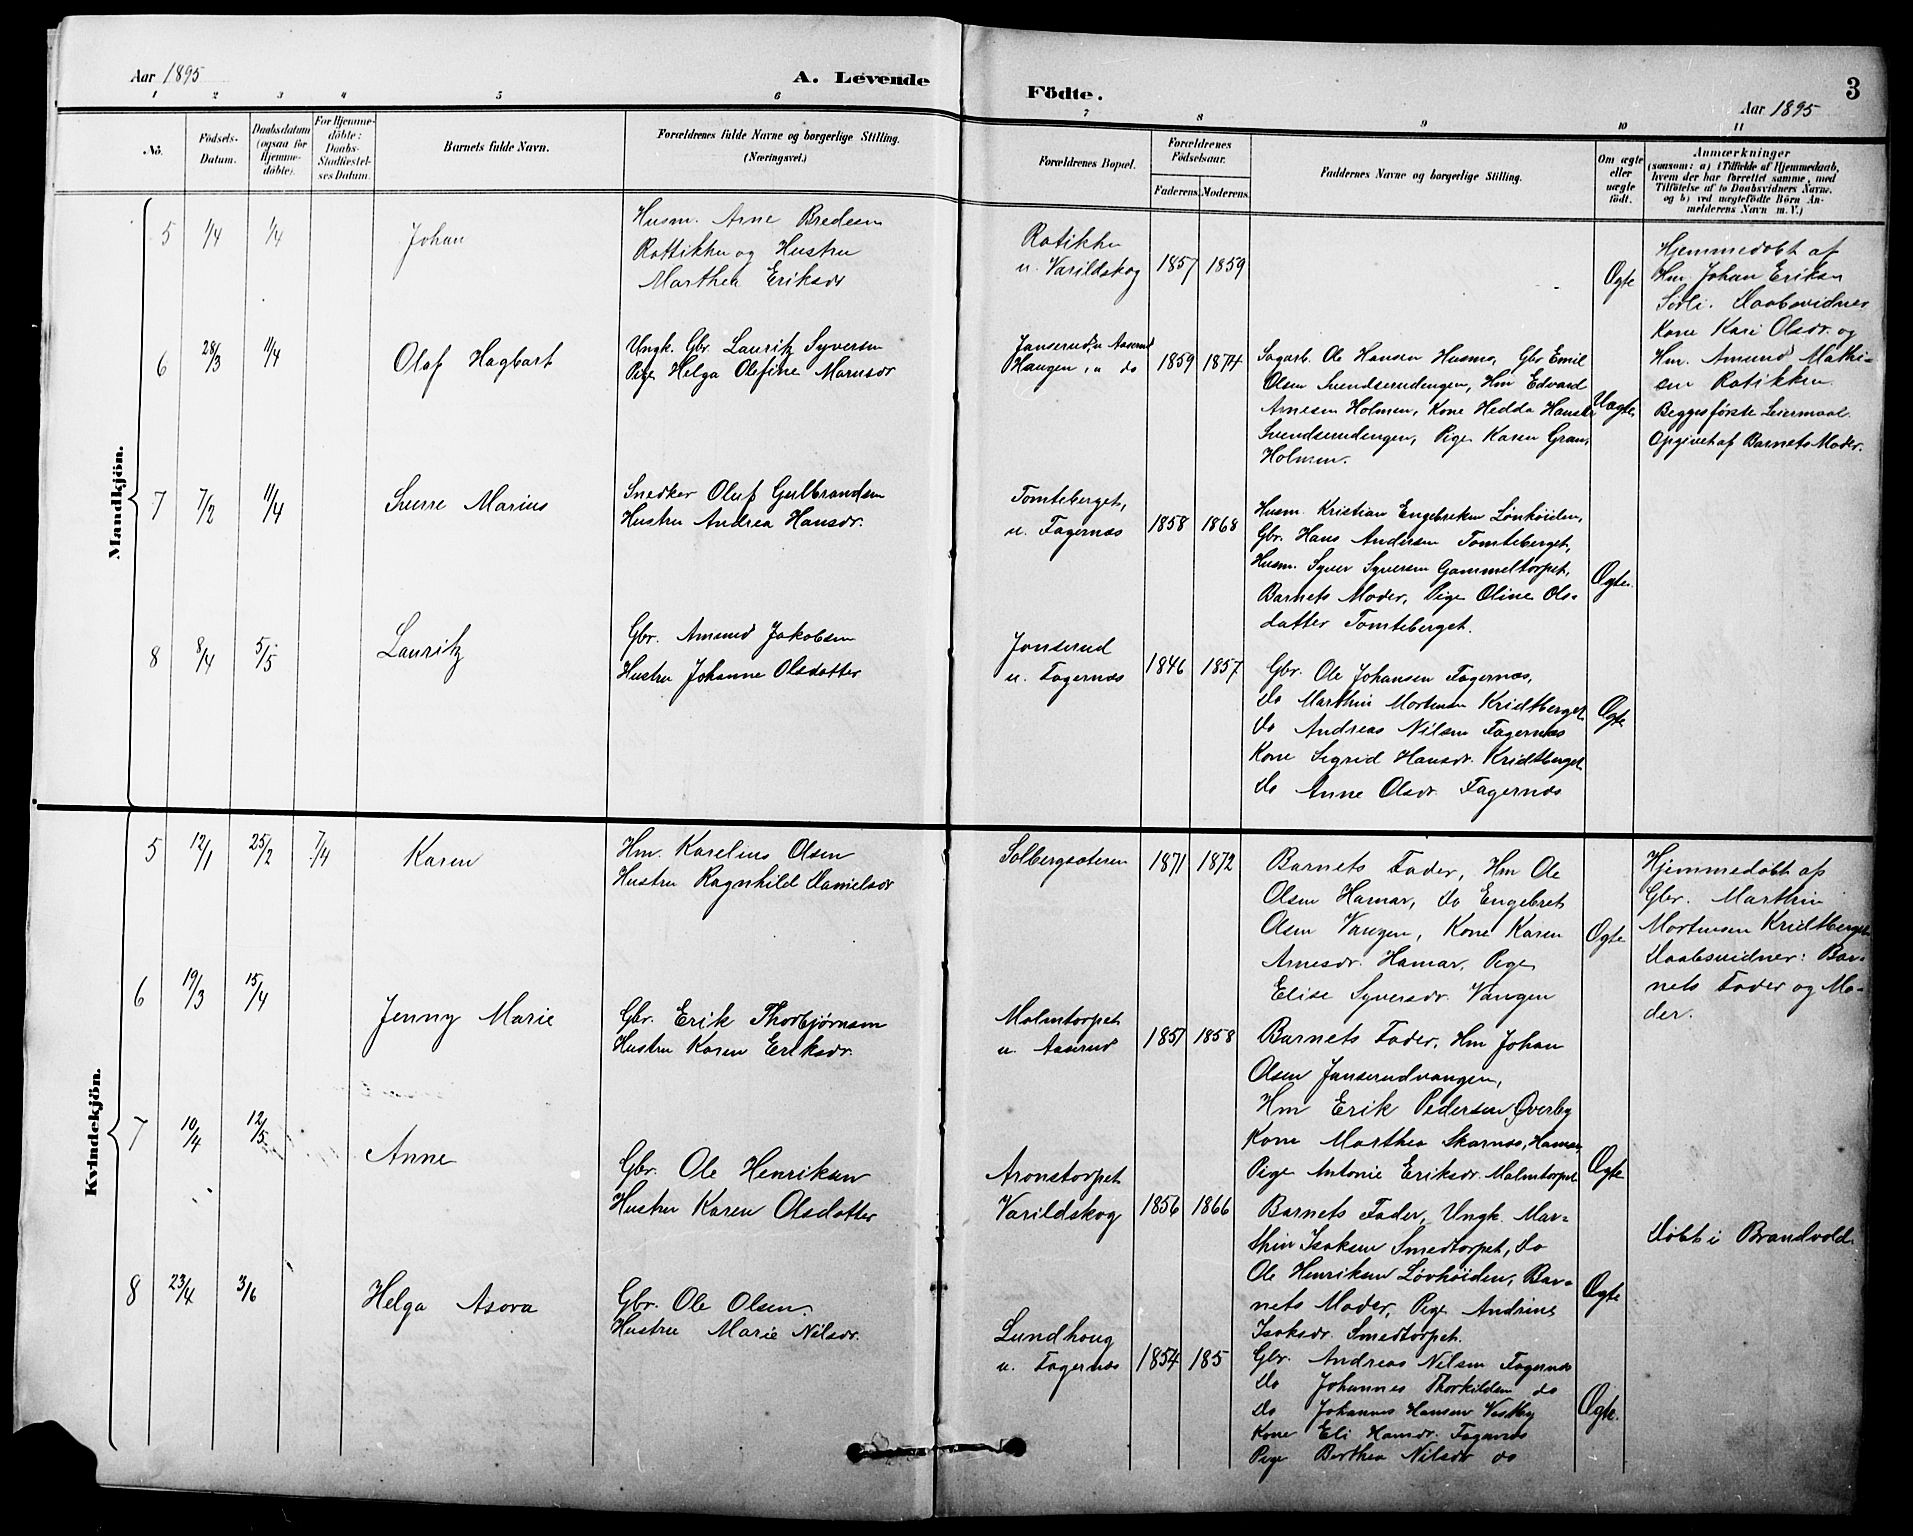 Aar 1895
A. Levende
Födte.
3
Aar 1895
1 2 3 4 5 6 7 8 9 10 11
No.
Födsels-
Datum.
Daabsdatum
(ogsaa för
Hjemme-
döbte).
For Hjemme-
döbte:
Daabs-
Stadfæstel-
ses Datum.
Barnets fulde Navn.
Forældrenes fulde Navne og borgerlige Stilling.
(Næringsvei.)
Forældrenes Bopæl.
Forældrenes
Födselsaar.
Faderens.
Moderens.
Faddernes Navne og borgerlige Stilling.
Om ægte
eller
uægte
födt.
Anmærkninger
(saasom: a) i Tilfælde af Hjemmedaab,
hvem der har forrettet samme, med
Tilföielse af to Daabsvidners Navne,
og b) ved uægtefödte Börn An-
melderens Navn m. V.)
Mandkjön.
5 1/4 1/4 Johan
Husm. Arne Bredesen
Rottikken og Hustru
Marthea Eriksdr
Rotikken
u. Varildskog 1857 1859
Ægte
Hjemmedøbt af
Hm. Johan Eriksen
Sörli. Daabsvidner
Kone Kari Olsdr. og
Hm. Amund Mathi-
sen Rotikken.
6 28/3 11/4 Olaf Hagbart
Ungk. Gbr. Lauritz Syversen
Pige Helga Olefine Mornsdr
Janserud, u Aaserud
Haugen, u do 1859 1874
Sagarb. Ole Hansen Husmo, Gbr Emil
Olsen Svendserudengen, Hm Edvard
Arnesen Holmen, Kone Hedda Hansdr
Svendserudengen, Pige Karen Gran,
Holmen.
Uægte
Begges første Leiermaal.
Opgivet af Barnets Moder.
7 7/2 11/4 Sverre Marius
Snedker Oluf Gulbrandsen
Hustru Andrea Hansdr.
Tomteberget,
u. Fagernæs 1858 1868
Husm. Kristian Engebretsen Lönhöiden,
Gbr. Hans Andersen Tomteberget,
Husm. Syver Syversen Gammeltorpet,
Barnets Moder, Pige Oline Ols-
datter Tomteberget.
Ægte.
8 8/4 5/5 Lauritz
Gbr. Amund Jakobsen
Hustru Johanne Olsdatter
Janserud
u. Fagernæs 1846 1857
Gbr. Ole Johansen Fagernæs,
do Marthin Mortensen Kridtberget
do Andreas Nilsen Fagernæs
Kone Sigrid Hansdr. Kridtberget
do Anne Olsdr. Fagernæs
Ægte
Kvindekjön.
5 12/1 25/2 7/4 Karen
Hm. Karelius Olsen
Hustru Ragnhild Danielsdr
Solbergsæteren 1871 1872
Barnets Fader, Hm Ole
Olsen Hamar, do Engebret
Olsen Vangen, Kone Karen
Arnesdr. Hamar, Pige
Elise Syversdr. Vangen
Ægte
Hjemmedøbt af
Gbr. Marthin
Mortensen Kridtberget
Daabsvidner: Bar-
nets Fader og Mo-
der.
6 19/3 15/4 Jenny Marie
Gbr. Erik Thorbjørnsen
Hustru Karen Eriksdr.
Malmtorpet
u. Aaserud 1857 1858
Barnets Fader, Hm Johan
Olsen Janserudvangen,
Hm Erik Pedersen Overby
Kone Marthea Skarnæs, Hamar,
Pige Antonie Eriksdr. Malmtorpet
Ægte
7 10/4 12/5 Anne
Gbr. Ole Henriksen
Hustru Karen Olsdatter
Aronstorpet
Varildskog 1856 1866
Barnets Fader, Ungk. Mar-
thin Isaksen Smedtorpet, do
Ole Henriksen Lövhöiden, Bar-
nets Moder, Pige Andrine
Isaksdr. Smedtorpet.
Ægte
Døbt i Brandvold
8 23/4 3/6 Helga Asora
Gbr. Ole Olsen.
Hustru Marie Nilsdr.
Lundhaug
u. Fagernæs 1854 185
Gbr. Andreas Nilsen Fagernæs
do Johannes Thorkildsen do
do Johannes Hansen Vestby
Kone Eli Hansdr. Fagernæs
Pige Berthea Nilsdr do
Ægte.